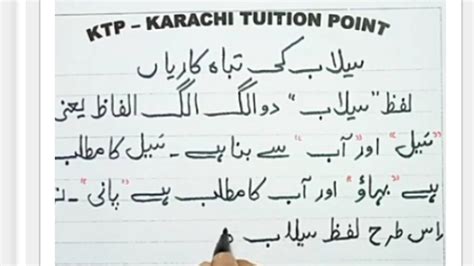 KTP – KARACHI TUITION POINT
سیلاب کی تباہ کاریاں
لفظ "سیلاب" دو الگ الگ الفاظ یعنی
"سَیل" اور "آب" سے بنا ہے ۔ سَیل کا مطلب
ہے "بہاؤ" اور آب کا مطلب ہے "پانی"۔
اس طرح لفظ سیلاب